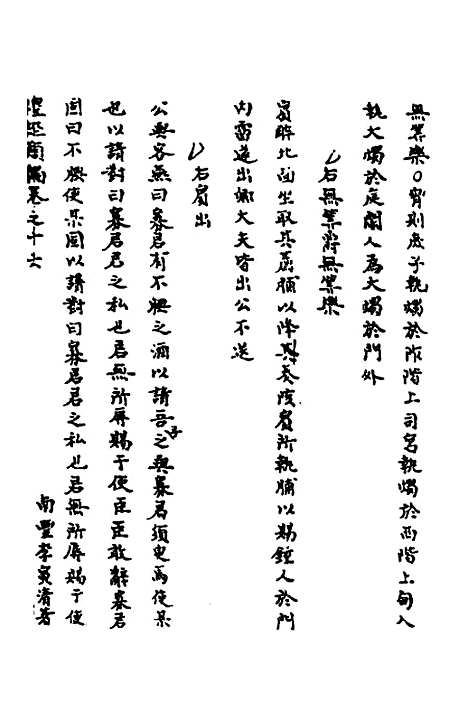 無筭樂○宵則庶子執燭於阼階上司宮執燭於西階上甸人
執大燭於庭閽人為大燭於門外
右無筭爵無筭樂
賓醉北面坐取其薦脯以降奏陔賓所執脯以賜鍾人於門
內霤遂出卿大夫皆出公不送
右賓出
公與客燕曰寡君有不腆之酒以請吾子之與寡君須臾焉使某
也以請對曰寡君君之私也君無所辱賜于使臣臣敢辭寡君
固曰不腆使某固以請對曰寡君君之私也君無所辱賜于使
南豐李寅清著
禮經 卷之十六